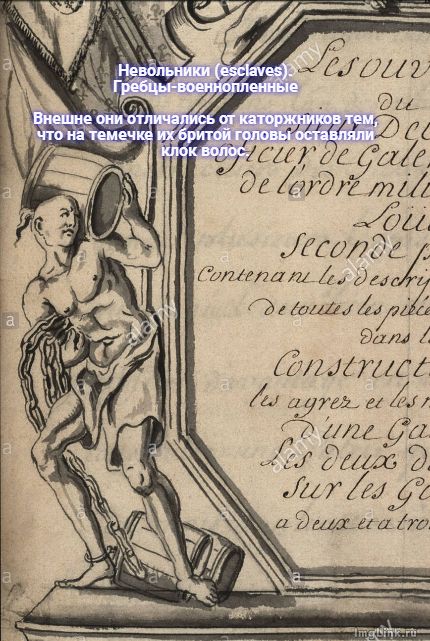 Невольники (esclaves).
Гребцы-военнопленные
Внешне они отличались от каторжников тем,
что на темечке их бритой головы оставляли
клок волос.
Les ouv
du
de Gale
de l'ordre mili
Loui
Seconde p
Contenant les descrip
de toutes les pièce
dans l
Construct
les agrez et les m
D'une Ga
Les deux d
Sur les Ga
a deux et a tro
alamy
alamy
alamy
alamy
ImgLink.ru